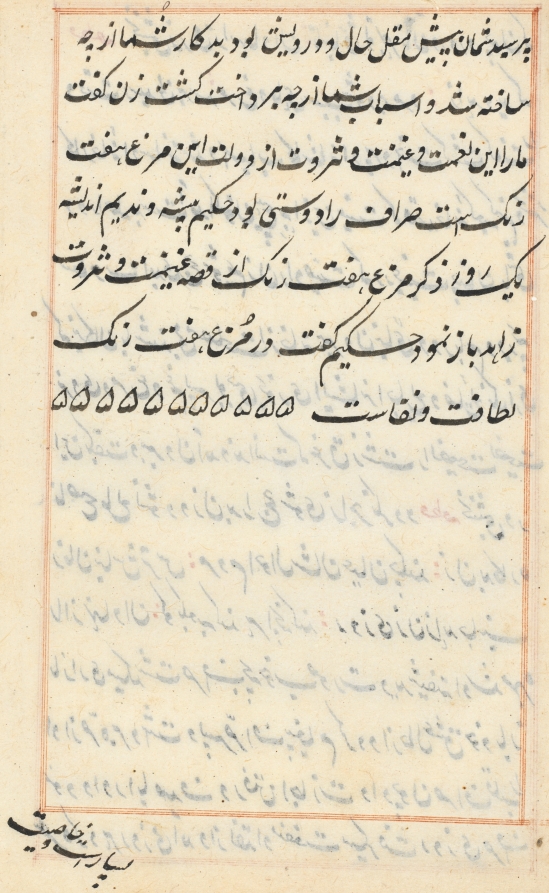 پرسید شمایان پیش مقل حال و درویش بودید کار شما از چه
ساخته شد و اسباب شما از چه پرداخت گشت زن گفت
ما را این نعمت و غنیمت و ثروت از دولت این مرغ هفت
رنک است صراف را دوستی بود حکیم پیشه و ندیم اندیشه
یک روز ذکر مرغ هفت رنک از قصه غنیمت و ثروت
زاهد باز نمود حکیم گفت در مرغ هفت رنک
لطافت و نفاست ۵۵۵۵۵۵۵۵۵۵
بسیار است و خاصیت